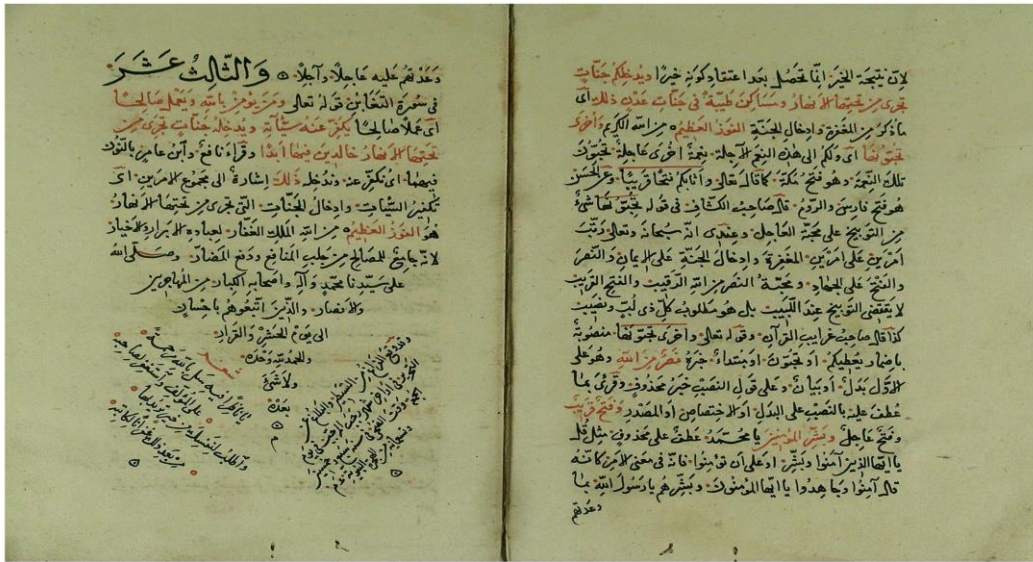 لان نتيجة الخير انما تحصل بعد اعتقاد كونه خيرا ويدخلكم جنات
تجرى من تحتها الانهار ومساكن طيبة فى جنات عدن ذلك اى
ما ذكر من المغفرة وادخال الجنة الفوز العظيم من الله الكريم واخرى
تحبونها اى ولكم الى هذه النعم الآجلة نعمة اخرى عاجلة تحبون
تلك النعمة وهو فتح مكة كما قال تعالى واثابكم فتحا قريبا وعن الحسن
هو فتح فارس والروم قال صاحب الكشاف فى قوله تحبونها شئ
من التوبيخ على محبة العاجل وعندى انه سبحانه وتعالى رتب
امرين على امرين المغفرة وادخال الجنة على الايمان والنصر
والفتح على الجهاد ومحبة النصر من الله الرقيب والفتح القريب
لا يقتضى التوبيخ عند اللبيب بل هو مطلوب كل ذى لب ونصيب
كذا قال صاحب غرايب القرآن وقوله تعالى واخرى تحبونها منصوبة
باضمار يعطيكم او تحبون او مبتداء خبره نصر من الله وهو على
الاول بدل او بيان وعلى قول النصب خبر محذوف وقرئ بما
عطف عليه بالنصب على البدل او الاختصاص او المصدر وفتح قريب
وفتح عاجل وبشر المؤمنين يا محمد عطف على محذوف مثل قل
يا ايها الذين آمنوا وبشر او على ان تؤمنوا فانه فى معنى الامر كانه
قال آمنوا وجاهدوا يا ايها المؤمنون وبشرهم يا رسول الله بما
وعدتهم
وعدتهم عليه عاجلا وآجلا والثالث عشر
فى سورة التغابن قوله تعالى ومن يؤمن بالله ويعمل صالحا
اى عملا صالحا يكفر عنه سيآته ويدخله جنات تجرى من
تحتها الانهار خالدين فيها ابدا وقراء نافع وابن عامر بالنون
فيهما اى نكفر عنه وندخله ذلك اشارة الى مجموع الامرين اى
تكفير السيآت وادخال الجنات التى تجرى من تحتها الانهار
هو الفوز العظيم من الله الملك الغفار لعباده الابرار الاخيار
لانه جامع للمصالح من جلب المنافع ودفع المضار وصلى الله
على سيدنا محمد وآله واصحابه الكبار من المهاجرين
والانصار والذين اتبعوهم باحسان
الى يوم الحشر والقرار
والحمد لله وحده
ولا شئ
بعده
م
شعر
يا ناظرا فيه سل بالله مرحمة
على المؤلف واستغفر لصاحبه
واطلب لنفسك من خير تريد بها
من بعد ذلك غفرانا لكاتبه